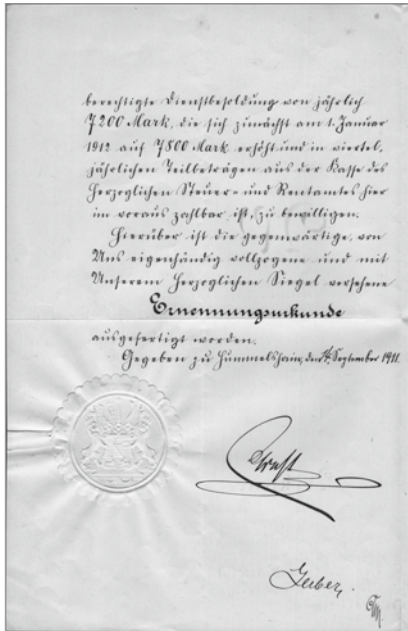 berechtigte Dienstbesoldung von jährlich
7200 Mark, die sich zunächst am 1. Januar
1912 auf 7800 Mark erhöht und in viertel-
jährlichen Teilbeträgen aus der Kasse des
Herzoglichen Steuer- und Rentamtes hier
im voraus zahlbar ist, zu bewilligen.
Hierüber ist die gegenwärtige, von
Uns eigenhändig vollzogene und mit
Unserem Herzoglichen Siegel versehene
Ernennungsurkunde
ausgefertigt worden.
Gegeben zu Hummelshain, den September 1911.
Ernst